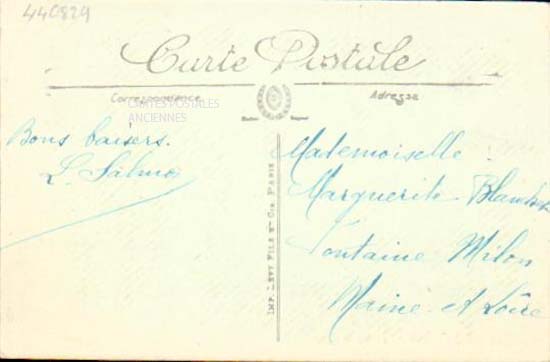 440829
Carte Postale
Correspondance
Adresse
CARTES POSTALES
ANCIENNES
Bons baisers.
L. Salmo
IMP. LÉVY FILS ET Cie PARIS
Mademoiselle
Marguerite
Fontaine Milon
Maine et Loire